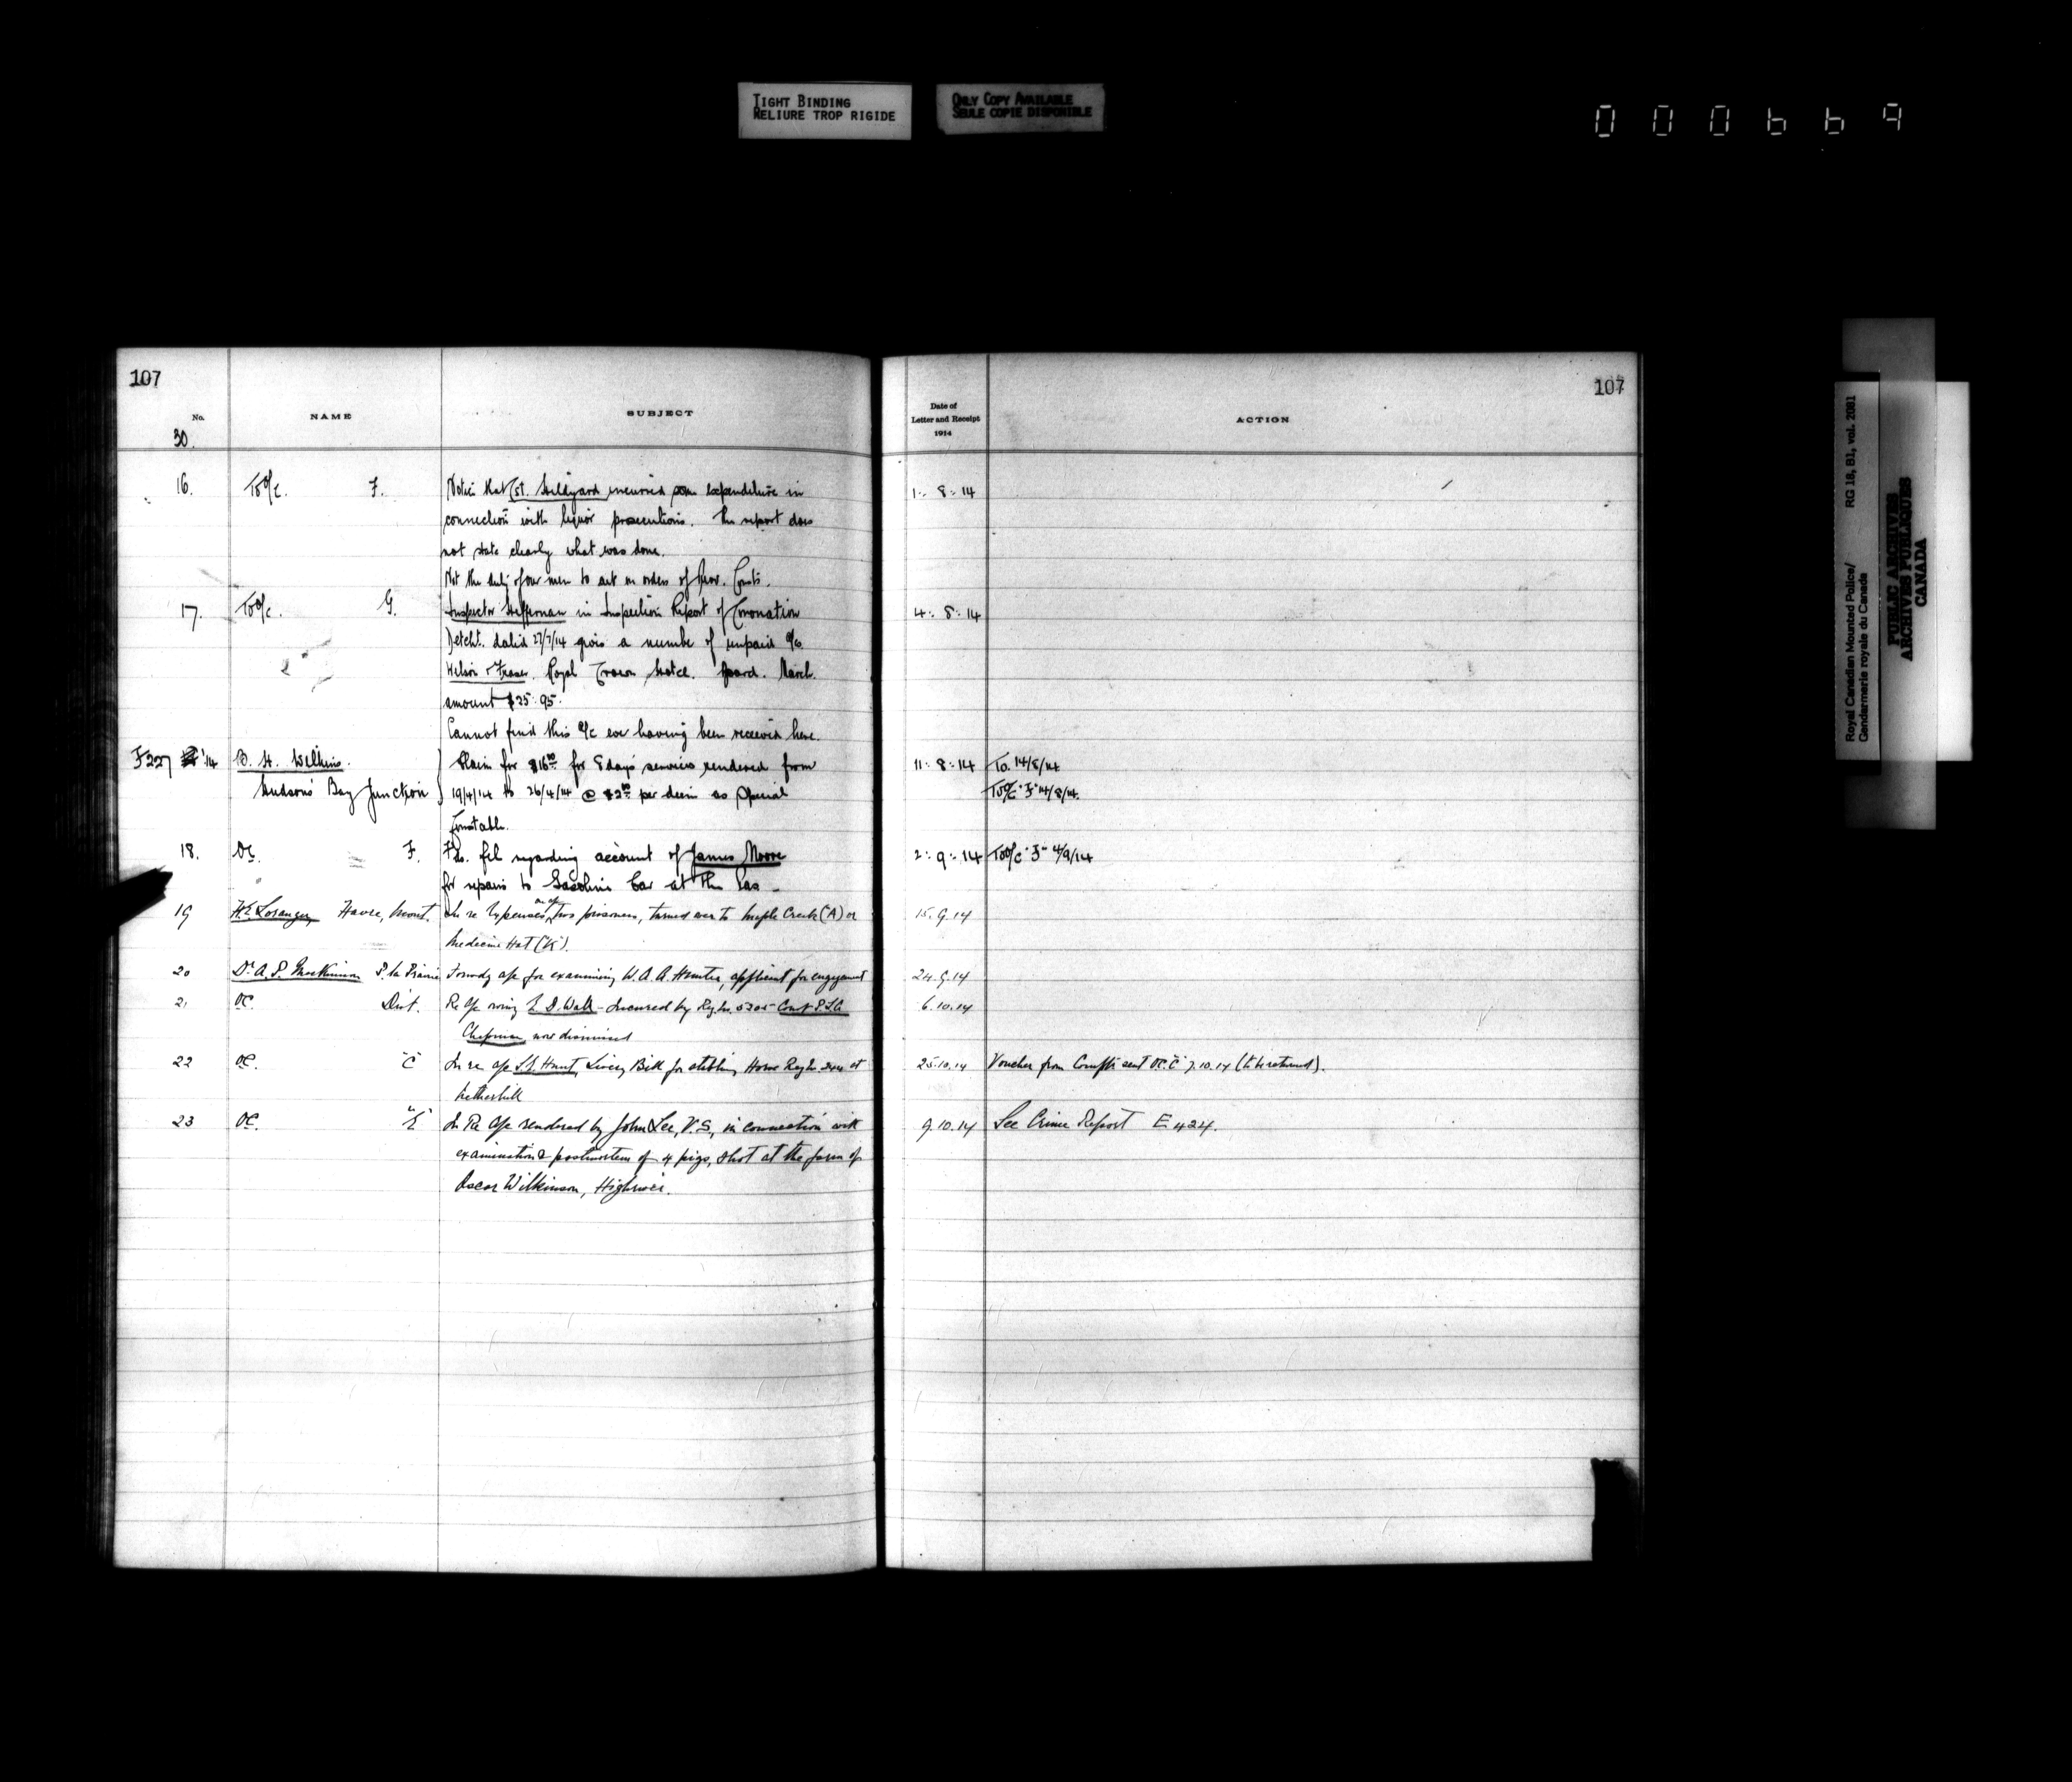 TIGHT BINDING
RELIURE TROP RIGIDE
ONLY COPY AVAILABLE
SEULE COPIE DISPONIBLE
000669
107
No.
NAME
SUBJECT
30.
16. To O/C. F. Notice that Cst. Hildyard incurred some expenditure in
connection with liquor prosecutions. The report does
not state clearly what was done.
Not the duty of our men to act on orders of Prov. Consts.
17. To O/C. G. Inspector Heffernan in Inspection Report of Coronation
Detcht. dated 27/7/14 gives a number of unpaid a/cs
Wilson & Fraser. Royal Crown Hotel. Board. March.
amount $25.95.
Cannot find this a/c ever having been received here.
F227 '14 B. H. Wilkins. Claim for $16.00 for 8 days services rendered from
Hudson's Bay Junction 19/4/14 to 26/4/14 @ $2.00 per diem as Special
Constable.
18. OC. F. Fds. file regarding account of James Moore
for repairs to Gasoline Car at The Pas -
19 Havre, Mont. In re Expenses two prisoners, turned over to Maple Creek ("A") or
Medicine Hat ("K").
20 Dr. A. P. MacKinnon P. la Prairie Forwdg a/c for examining W. A. A. Hunter, applicant for engagement
21 OC. Dist. Re a/c owing E. D. Wall - Incurred by Regt. No. 5305 Const.
Chapman now dismissed
22 OC. "C" In re a/c Hunt, Livery Bill for stabling Horse Regt. No. at
Netherhill
23 OC. "E" In Re a/c rendered by John Lee, V.S., in connection with
examination & postmortem of 4 pigs, shot at the farm of
Oscar Wilkinson, Highriver.
107
Date of
Letter and Receipt
1914
ACTION
1 : 8 : 14
4 : 8 : 14
11 : 8 : 14 To. 14/8/14
To O/C "F" 14/8/14.
2 : 9 : 14 To O/C "F" 4/9/14
15.9.14
24.9.14
6.10.14
25.10.14 Voucher from Comptr. sent OC. "C" 7.10.14 (to be returned).
9.10.14 See Crime Report E 424.
Royal Canadian Mounted Police/ RG 18, B1, vol. 2081
Gendarmerie royale du Canada
PUBLIC ARCHIVES
ARCHIVES PUBLIQUES
CANADA